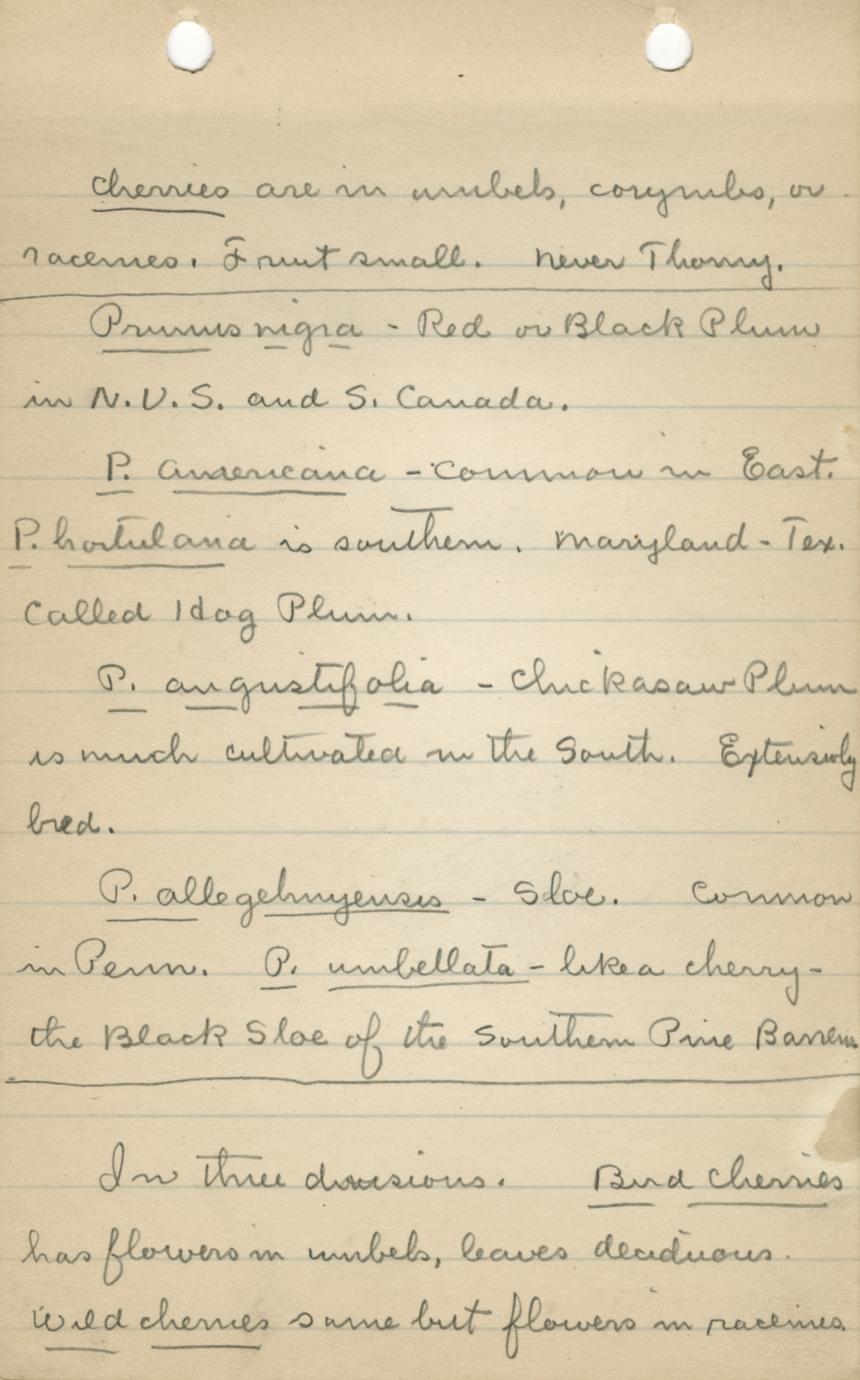 Cherries are in umbels, corymbs, or
racemes. Fruit small. Never Thorny.
Prunus nigra - Red or Black Plum
in N.U.S. and S. Canada.
P. americana - common in East.
P. hortulana is southern. Maryland - Tex.
Called Hog Plum.
P. angustifolia - Chickasaw Plum
is much cultivated in the South. Extensivly
bred.
P. allegehnyensis - Sloe. Common
in Penn. P. umbellata - like a cherry -
the Black Sloe of the Southern Pine Barrens
In three divisions. Bird Cherries
has flowers in umbels, leaves deciduous.
Wild cherries same but flowers in racemes.